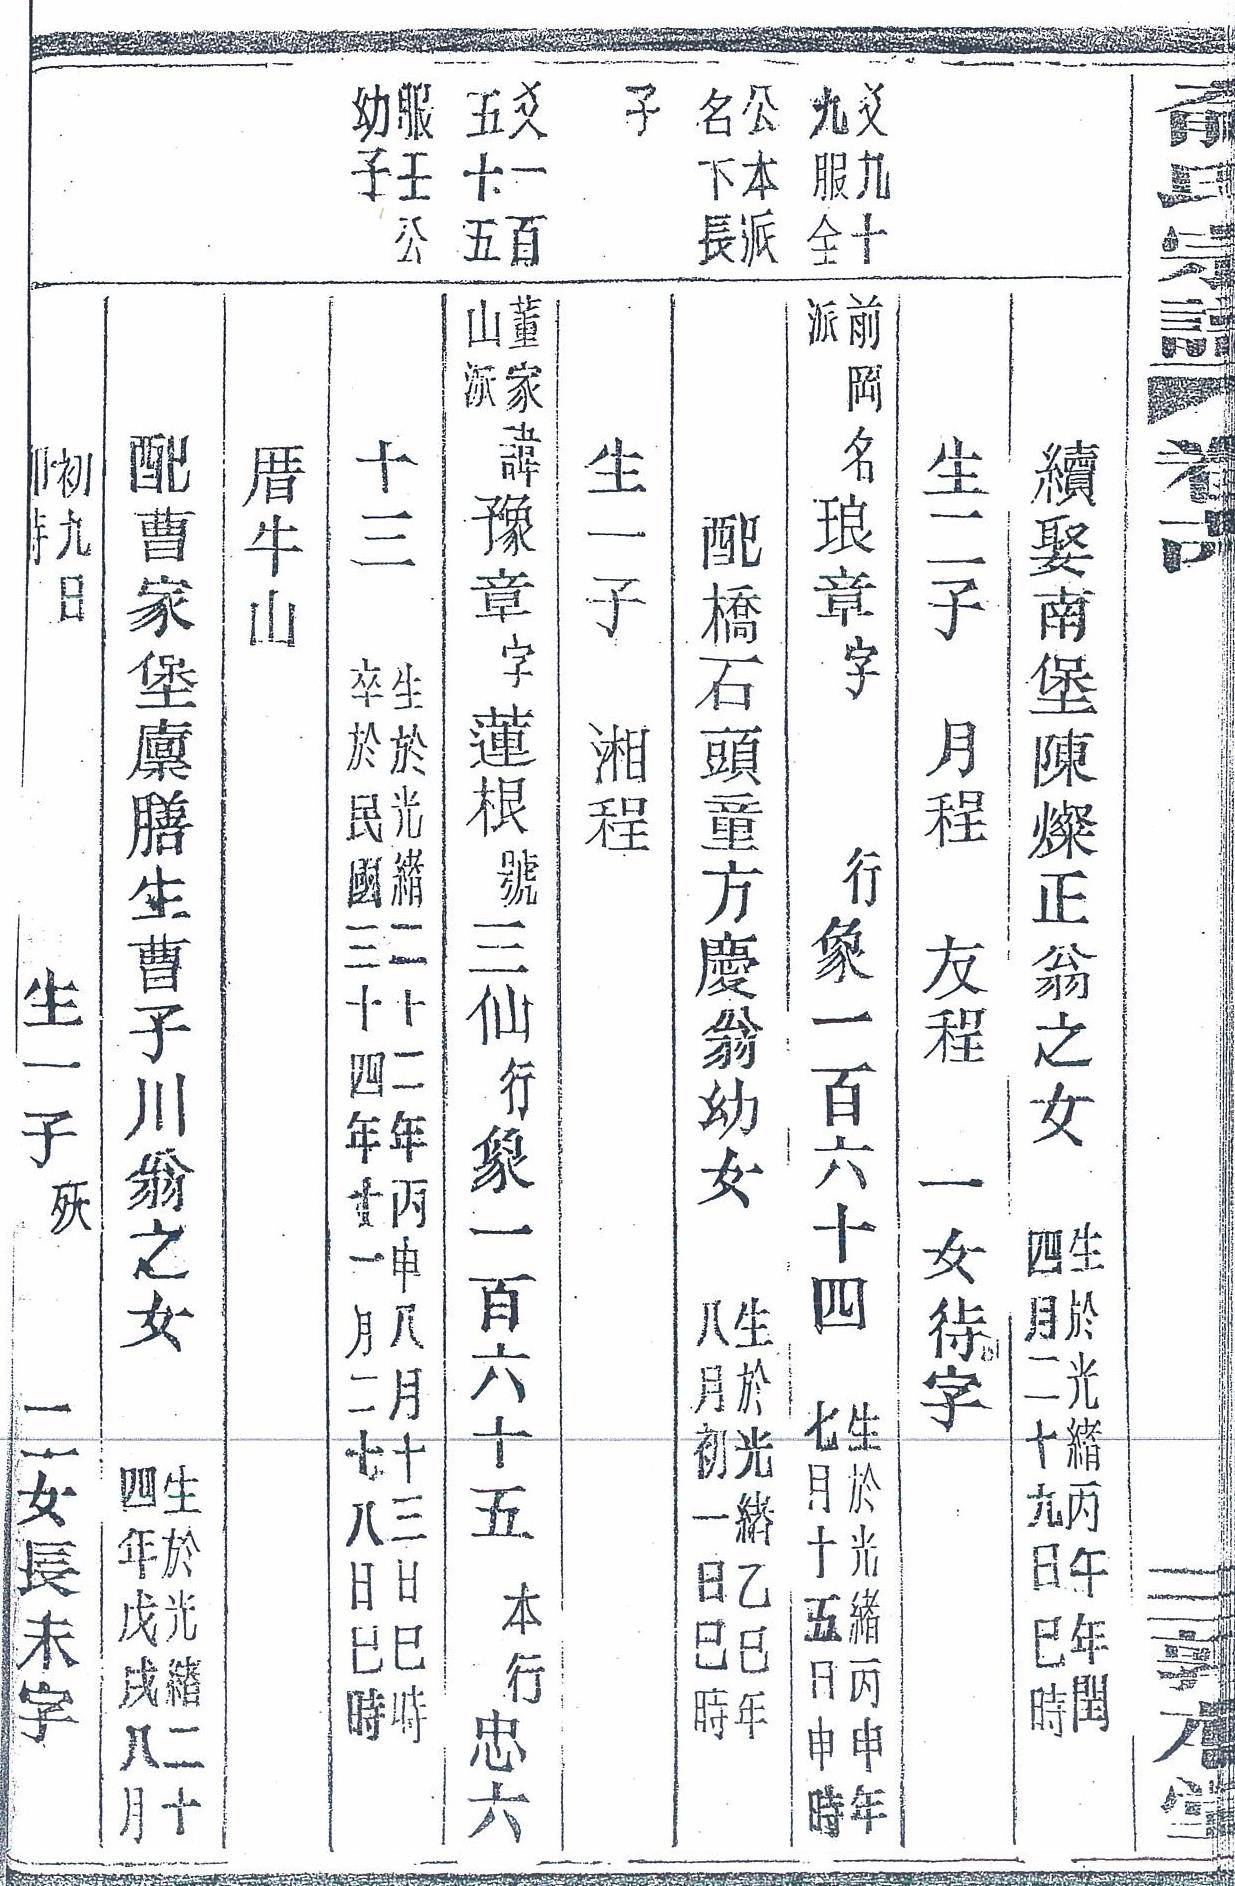 俞氏宗譜 卷
敦九堂
續娶南堡陳燦正翁之女 生於光緒丙午年閏
四月二十九日巳時
生二子 月程 友程 一女待字
爻九十
九服全
前岡名琅章字 行象一百六十四 生於光緒丙申年
派
七月十五日申時
公本派
名下長
配橋石頭童方慶翁幼女 生於光緒乙巳年
八月初一日巳時
子
生一子 湘程
爻一百
五十五
董家諱豫章字蓮根號三仙行象一百六十五 本行忠六
山派
服壬公
幼子
十三 生於光緒二十二年丙申八月十三日巳時
卒於民國三十四年十一月二七八日巳時
厝牛山
配曹家堡廩膳生曹子川翁之女 生於光緒二十
四年戊戌八月
初九日
卯時
生一子 殀 二女長未字